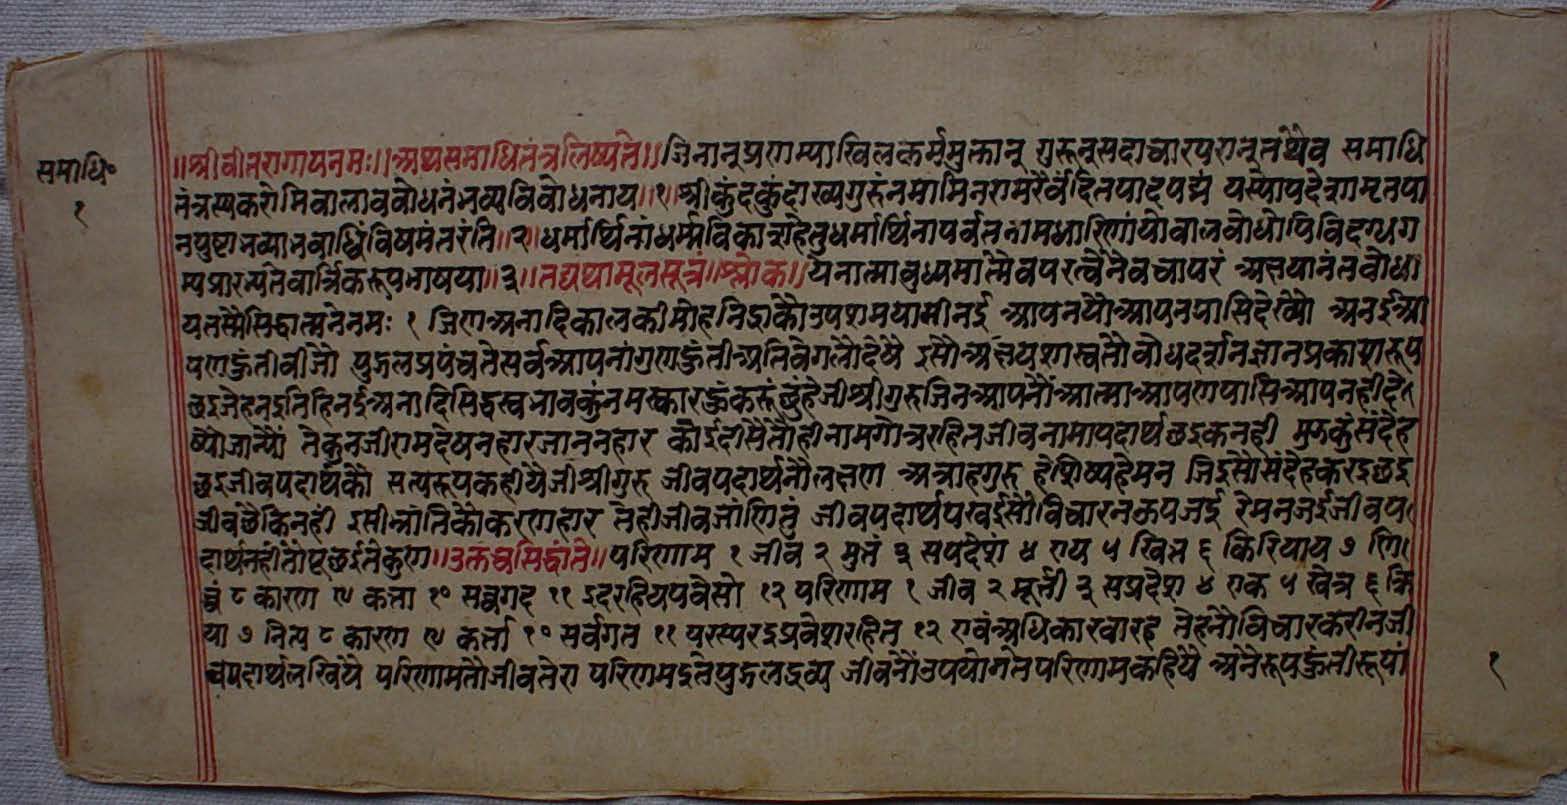 समाधि॰
१
॥श्रीवीतरागायनमः॥अथसमाधितंत्रलिष्यते॥जिनान्प्रणम्याखिलकर्ममुक्तान् गुरून्सदाचारपरान्तथैव समाधि
तंत्रस्यकरोमिबालावबोधनंभव्यविबोधनाय॥१॥श्रीकुंदकुंदाख्यगुरुंनमामिनरामरैर्वंदितपादपद्मं यस्योपदेशामृतपा
नपुष्टाभव्याभवाब्धिंविषमंतरंति॥२॥धर्मार्थिनांधर्म्मविकाशहेतुधर्मार्थिनापर्वतनामधारिणांयोबालबोधोपिविदग्धग
म्यप्रारभ्यतेवार्त्तिकरूपभाषया॥३॥तद्यथामूलसूत्रं॥श्लोक॥येनात्माबुध्यमात्मैवपरत्वैनेवचापरं अक्षयानंतबोधा
यतस्मैसिद्धात्मनेनमः १ जिणअनादिकालकीमोहनिद्राकौउपशमपामीनई आपनयौआपनपासिदेख्यौ अनईआ
पणहुंतीबीजौ पुद्गलप्रपंचतेसर्वआपनांगुणहुंतीअतिवेगलौदेषै इसौअक्षयशास्वतौबोधदर्शनज्ञानप्रकाशरूप
छइजेहनइतिहिनईअनादिसिद्धस्वभावकुंनमस्कारहुंकरूंछुंहेजीश्रीगुरुजिनआपनौंआत्माआपणपासिआपनहीदे
ष्यौजान्यौ तेकुनजीरामदेषनहारजाननहार कोईदीसैतौहीनामगोत्ररहितजीवनामापदार्थछइकनही मुझकुंसंदेह
छइजीवपदार्थकौ सत्यरूपकहीयैजीश्रीगुरु जीवपदार्थनौलक्षण अत्राहगुरु हेशिष्यहेमन जिइसौसंदेहकरइछइ
जीवछैकिनही इसीभ्रांतिकौकरणहार तेहीजीवजांणितुं जीवपदार्थपखईसौविचारनऊपजई रेमनजईजीवप
दार्थनहीतौपूछईतेकुण॥उक्तंचसिद्धांते॥परिणाम १ जीव २ मुत्तं ३ सपदेश ४ एय ५ खित्त ६ किरियाय ७ णि
च्चं ८ कारण ९ कत्ता १० सव्वगद ११ इदरहियपवेसो १२ परिणाम १ जीव २ मूर्त्ती ३ सप्रदेश ४ एक ५ खेत्र ६ क्रि
या ७ नित्य ८ कारण ९ कर्त्ता १० सर्वगत ११ परस्परइप्रवेशरहित १२ एवंअधिकारबारह तेहनौविचारकरीनजी
वपदार्थलखियै परिणामतौजीवतेरा परिणमइतेपुद्गलद्रव्य जीवनौउपयोगतेपरिणामकहियै अनेरूपहुंतीरूपां
१